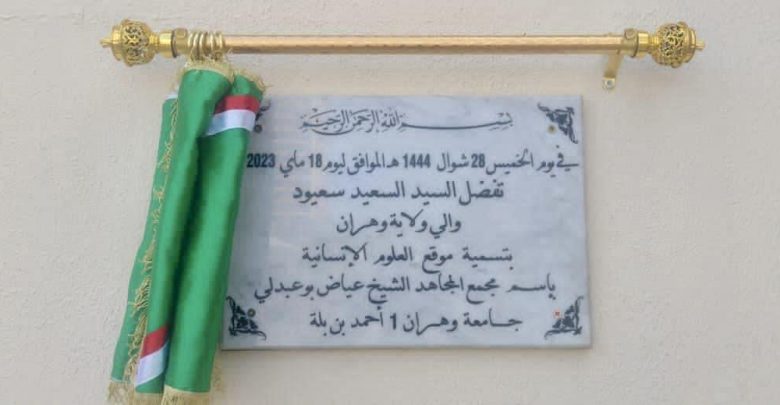 بسم الله الرحمن الرحيم
في يوم الخميس 28 شوال 1444 هـ الموافق ليوم 18 ماي 2023
تفضل السيد السعيد سعيود
والي ولاية وهران
بتسمية موقع العلوم الإنسانية
بإسم مجمع المجاهد الشيخ عياض بوعبدلي
جامعة وهران 1 أحمد بن بلة